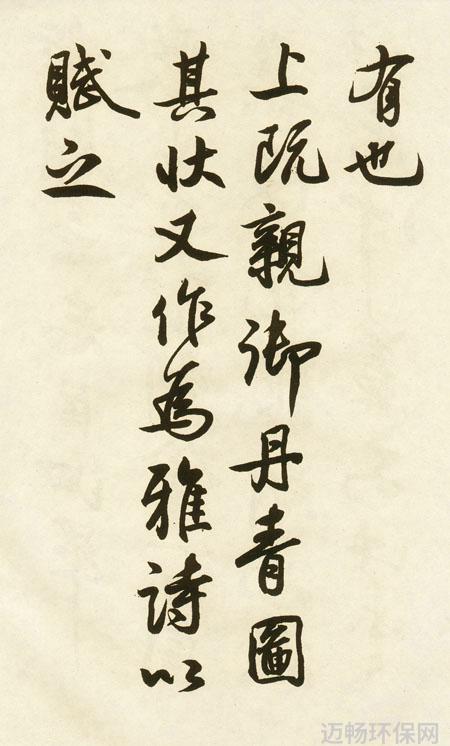 有也
上既親御丹青圖
其狀又作為雅詩以
賦之
迈畅环保网